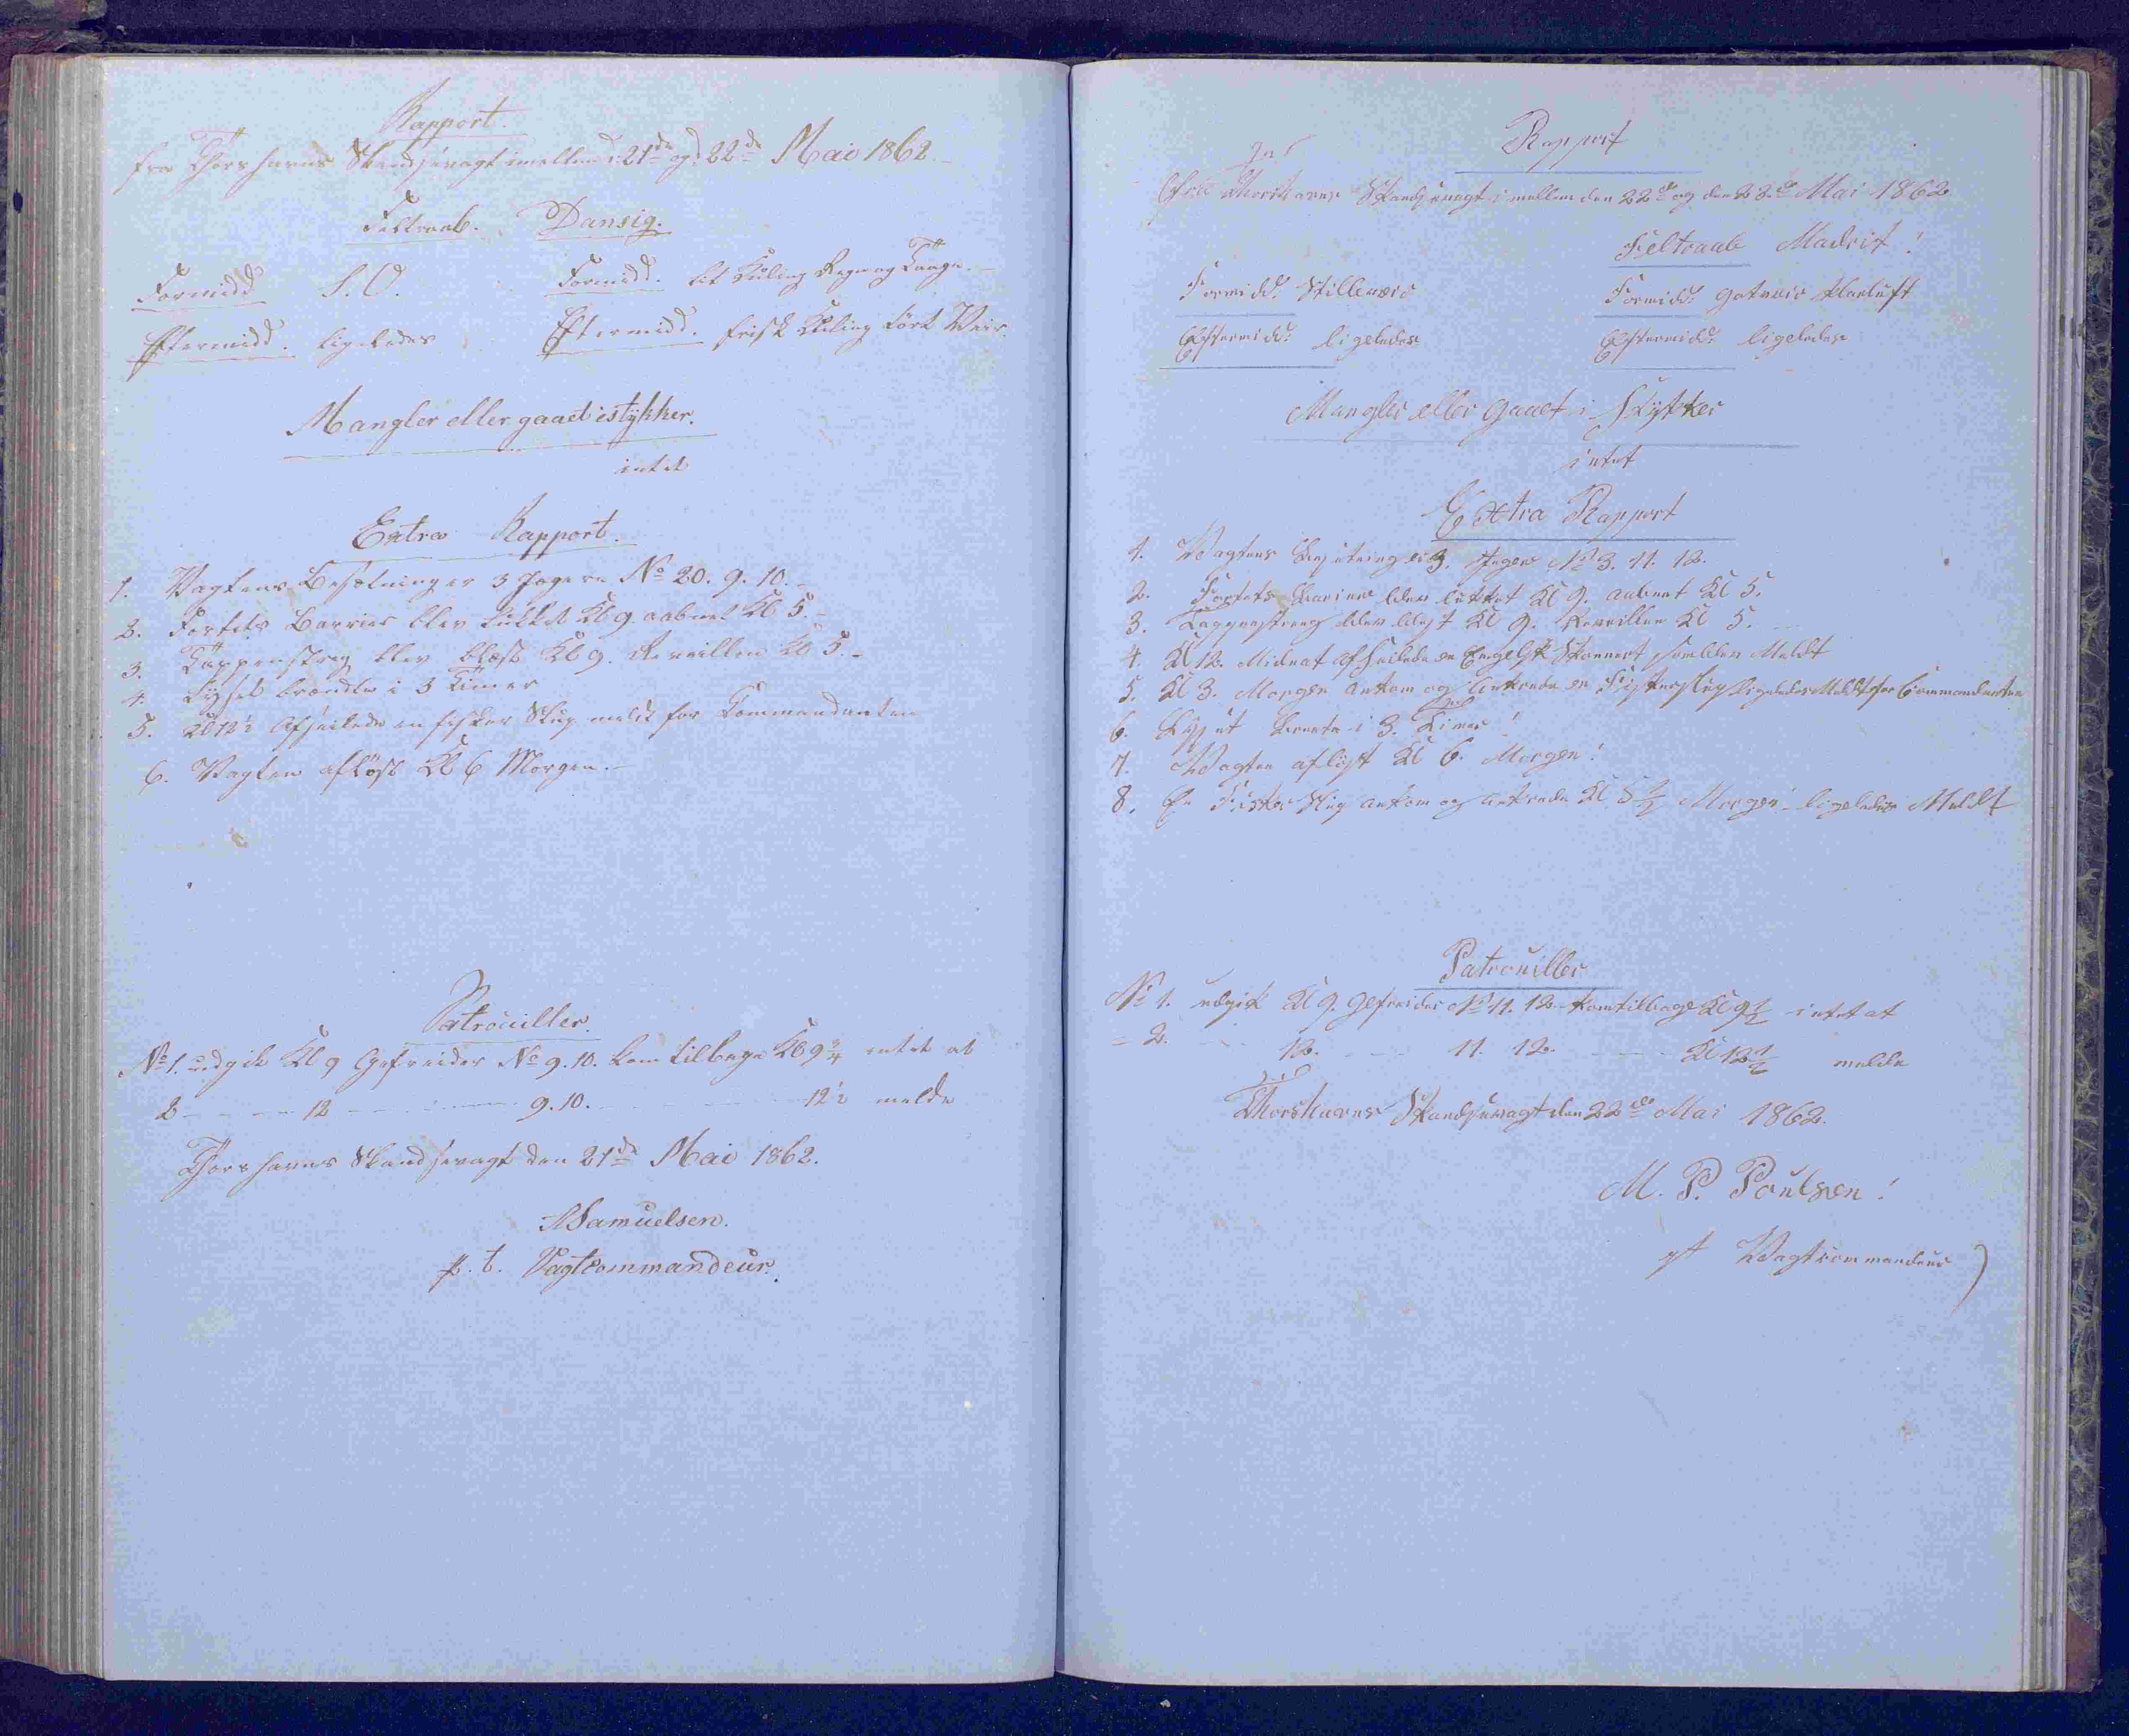 Rapport.
fra Thorshavns Skandsevagt imellem d: 21de og d: 22de Mai 1862.
Feltraab. Dansig.
Formidd S. O. Formidd. lit Kuling Regn og Taage.
Eftermidd. ligeledes Eftermidd. frisk Kuling tört Veir.
Mangler eller gaaet istykker.
intet
Extra Rapport.
1. Vagtens Besætning er 3 Jægere No 20. 9. 10.
2. Fortets Barrier blev lukket Kl 9 aabnet Kl 5.
3. Tappenstreg blev blæst Kl 9. Reveillen Kl 5.
4. Lyset brændte i 3 Timer
5. Kl 12½ Afseilede en fisker Slup meldt for Commandanten
6. Vagten aflöst Kl 6 Morgen.
Patrouiller.
No 1. udgik Kl 9 Gefreider No 9. 10. kom tilbage Kl 9¾ intet at
2 - - - 12 - - - 9. 10. - - - 12½ melde
Thorshavns Skandsevagt den 21de Mai 1862.
Samuelsen.
p. t. Vagtcommandeur.
Rapport
Fra Thorshavns Skandsevagt imellem den 22de og den 23de Mai 1862
Feltraab Madrit!
Formidd: Stilleveir Formidd: Gotveir klarluft
Eftermidd: ligeledes Eftermidd: ligeledes
Mangler eller Gaaet i Stykker
intet
Extra Rapport
1. Vagtens Besetning er 3. Jeger No 3. 11. 12.
2. Fortets Barriere blev lukket Kl 9. aabnet Kl 5.
3. Tappenstreng blev blest Kl 9. Reveillen Kl 5.
4. Kl 12. Midnat afseilede en Engelsk Skonnert som blev Meldt
5. Kl 3. Morgen ankom og ankrede en Fiskerslup ligeledes Meldt for Commandanten
6. Lyset brente i 3. Timer!
7. Vagten aflöst Kl 6. Morgen!
8. En Fisker Slup ankom og ankrede Kl 5½ Morgen ligeledes Meldt
Patrouiller
No 1. udgik Kl 9. Gefreider No 11. 12. kom tilbage Kl 9½ intet at
- 2. - - 12. - - - 11. 12. - - - Kl 12½ melde
Thorshavns Skandsevagt den 22de Mai 1862.
M. P. Poulsen!
pt Vagtcommandeur